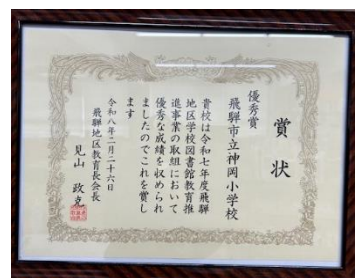 賞状
優秀賞
飛騨市立神岡小学校
貴校は令和七年度飛騨
地区学校図書館教育推
進事業の取組において
優秀な成績を収められ
ましたのでこれを賞し
ます
令和八年二月二十六日
飛騨地区教育長会長
見山 政克